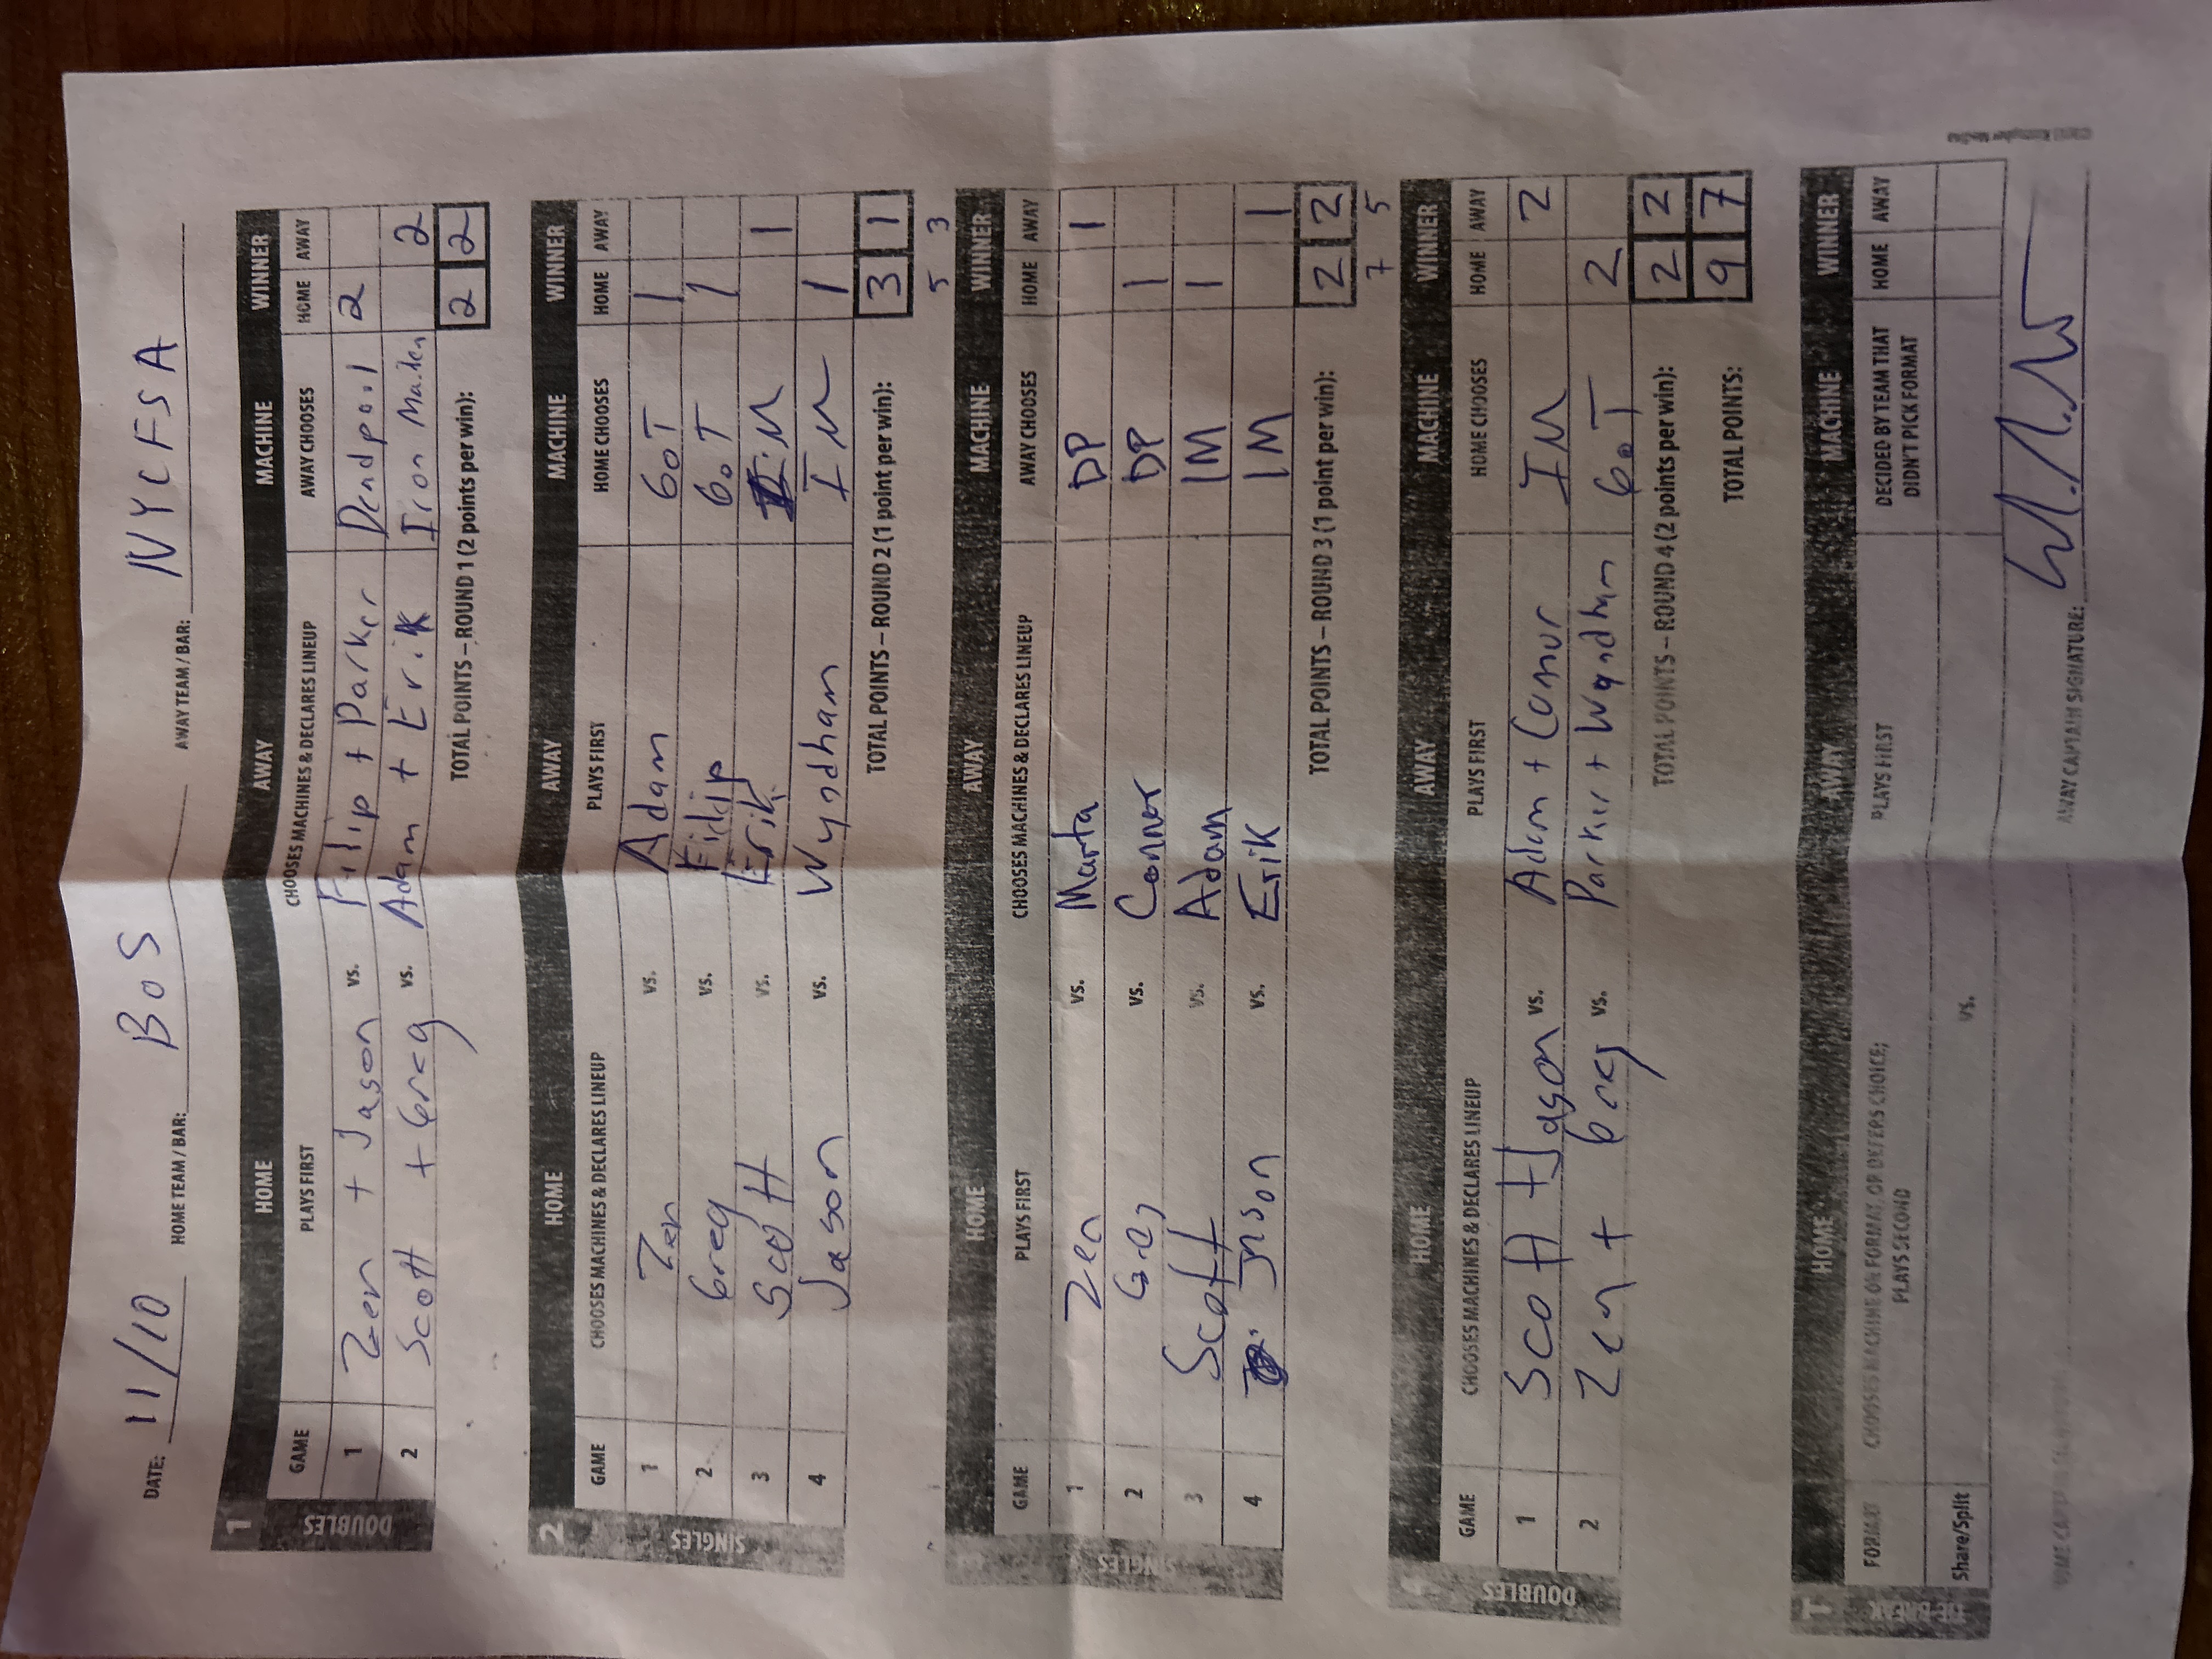 DATE: 11/10 HOME TEAM / BAR: BOS AWAY TEAM / BAR: NYCFSA
1 HOME AWAY MACHINE WINNER
GAME PLAYS FIRST CHOOSES MACHINES & DECLARES LINEUP AWAY CHOOSES HOME AWAY
DOUBLES
1 Zen + Jason vs. Filip + Parker Deadpool 2
2 Scott + Greg vs. Adam + Erik Iron Maiden 2
TOTAL POINTS – ROUND 1 (2 points per win): 2 2
2 HOME AWAY MACHINE WINNER
GAME CHOOSES MACHINES & DECLARES LINEUP PLAYS FIRST HOME CHOOSES HOME AWAY
SINGLES
1 Zen vs. Adam GOT 1
2 Greg vs. Filip GoT 1
3 Scott vs. Erik IM 1
4 Jason vs. Wyndham IM 1
TOTAL POINTS – ROUND 2 (1 point per win): 3 1
5 3
3 HOME AWAY MACHINE WINNER
GAME PLAYS FIRST CHOOSES MACHINES & DECLARES LINEUP AWAY CHOOSES HOME AWAY
SINGLES
1 Zen vs. Marta DP 1
2 Greg vs. Connor DP 1
3 Scott vs. Adam IM 1
4 Jason vs. Erik IM 1
TOTAL POINTS – ROUND 3 (1 point per win): 2 2
7 5
4 HOME AWAY MACHINE WINNER
GAME CHOOSES MACHINES & DECLARES LINEUP PLAYS FIRST HOME CHOOSES HOME AWAY
DOUBLES
1 Scott + Jason vs. Adam + Conor IM 2
2 Zen + Greg vs. Parker + Wyndham GoT 2
TOTAL POINTS – ROUND 4 (2 points per win): 2 2
TOTAL POINTS: 9 7
T HOME AWAY MACHINE WINNER
FORMAT CHOOSES MACHINE OR FORMAT, OR DEFERS CHOICE; PLAYS SECOND PLAYS FIRST DECIDED BY TEAM THAT DIDN'T PICK FORMAT HOME AWAY
TIE-BREAK
Share/Split vs.
HOME CAPTAIN SIGNATURE: AWAY CAPTAIN SIGNATURE: